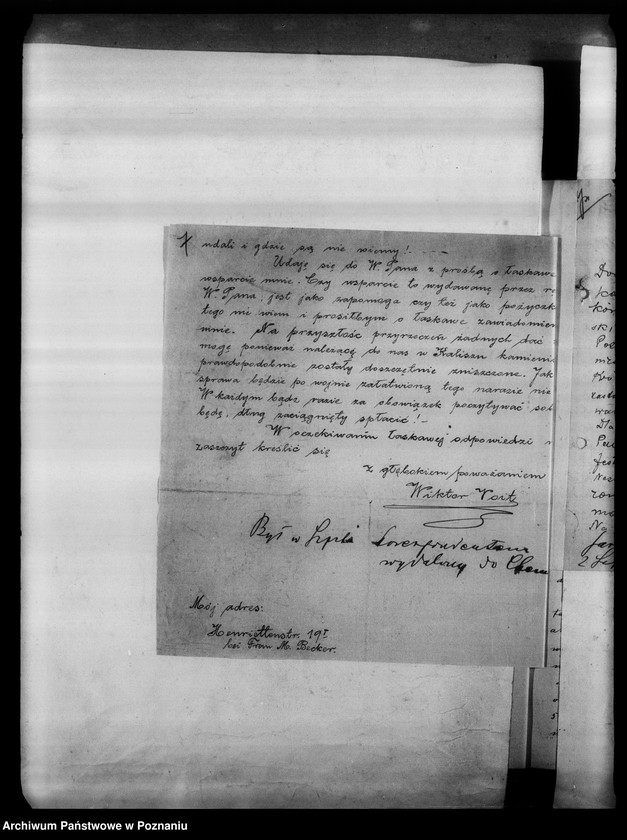 udali i gdzie są nie wiemy! ...
Udaję się do W. Pana z prośbą o łaskawe
wsparcie mnie. Czy wsparcie to wydawane przez
W. Pana, jest jako zapomoga czy też jako pożyczk
tego nie wiem i prosiłbym o łaskawe zawiadomien
mnie. Na przyszłość przyrzeczeń żadnych dać
mogę ponieważ należące do nas w Kaliszu kamieni
prawdopodobnie zostały doszczętnie zniszczone. Jak
sprawa będzie po wojnie załatwioną tego narazie nie
W każdym bądź razie za obowiązek poczytywać sob
będę, dług zaciągnięty spłacić! -
W oczekiwaniu łaskawej odpowiedzi
zaszczyt kreślić się
z głębokiem poważaniem
Wiktor
Był w
wydalony do
Mój adres:
Henriettenstr. 19I
bei Frau M. Becker.
Archiwum Państwowe w Poznaniu